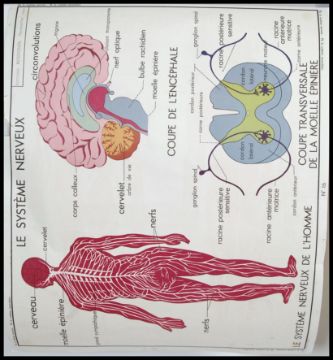 LE SYSTÈME NERVEUX
circonvolutions
nerf optique
bulbe rachidien
moelle épinière
corps calleux
cervelet
arbre de vie
COUPE DE L'ENCÉPHALE
ganglion spinal
racine postérieure
sensitive
racine antérieure
motrice
cordon postérieur
corne postérieure
cordon
latéral
cordon
latéral
ganglion spinal
racine postérieure
sensitive
racine antérieure
motrice
cordon antérieur
COUPE TRANSVERSALE
DE LA MOELLE ÉPINIÈRE
cerveau
cervelet
moelle épinière
nerfs
nerfs
LE SYSTÈME NERVEUX DE L'HOMME